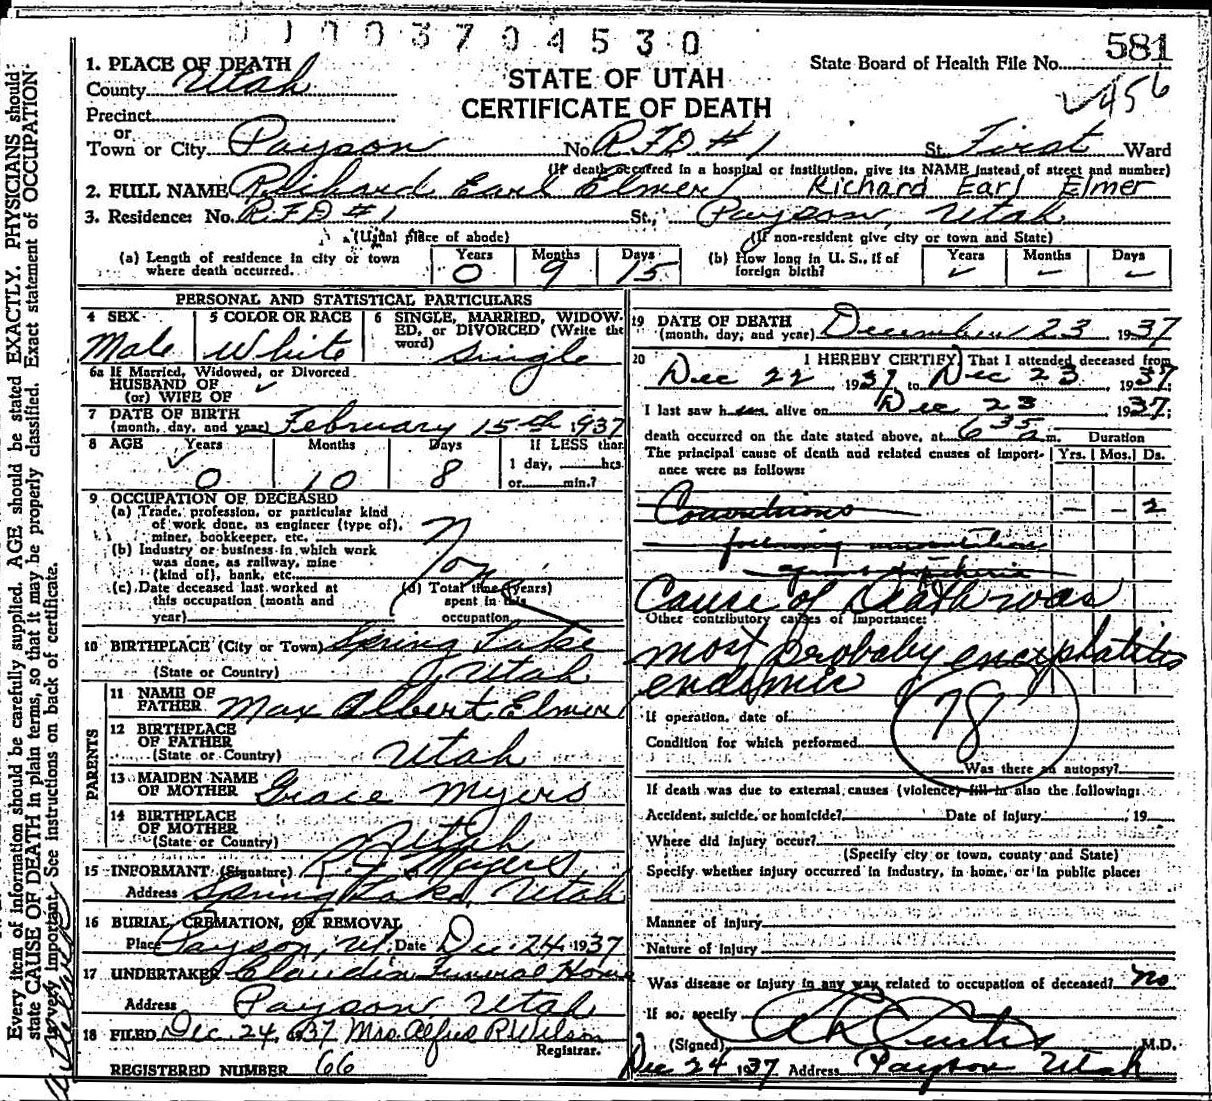 0 1 0 0 3 7 0 4 5 3 0
581
1. PLACE OF DEATH
County Utah
STATE OF UTAH
CERTIFICATE OF DEATH
State Board of Health File No.
456
Precinct
or
Town or City Payson No. RFD #1 St. First Ward
(If death occurred in a hospital or institution, give its NAME instead of street and number)
2. FULL NAME Richard Earl Elmer Richard Earl Elmer
3. Residence: No. RFD #1 St., Payson, Utah
(Usual place of abode) (If non-resident give city or town and State)
(a) Length of residence in city or town where death occurred. Years 0 Months 9 Days 15
(b) How long in U. S., if of foreign birth? Years Months – Days –
PERSONAL AND STATISTICAL PARTICULARS
4 SEX Male
5 COLOR OR RACE White
6 SINGLE, MARRIED, WIDOWED, or DIVORCED (Write the word) Single
6a If Married, Widowed, or Divorced
HUSBAND OF
(or) WIFE OF
7 DATE OF BIRTH
(month, day, and year) February 15th 1937
8 AGE Years 0 Months 10 Days 8 If LESS than 1 day, hrs. or min.?
9 OCCUPATION OF DECEASED
(a) Trade, profession, or particular kind of work done, as engineer (type of), miner, bookkeeper, etc.
(b) Industry or business in which work was done, as railway, mine (kind of), bank, etc.
(c) Date deceased last worked at this occupation (month and year)
(d) Total time (years) spent in this occupation
None
10 BIRTHPLACE (City or Town) Spring Lake
(State or Country) Utah
PARENTS
11 NAME OF FATHER Max Albert Elmer
12 BIRTHPLACE OF FATHER
(State or Country) Utah
13 MAIDEN NAME OF MOTHER Grace Myers
14 BIRTHPLACE OF MOTHER
(State or Country) Utah
15 INFORMANT (Signature) R. J. Myers
Address Spring Lake, Utah
16 BURIAL, CREMATION, OR REMOVAL
Place Payson, Ut. Date Dec. 24 1937
17 UNDERTAKER Claudin Funeral Home
Address Payson Utah
18 FILED Dec. 24, 1937 Mrs. Alfred R. Wilson
Registrar.
REGISTERED NUMBER 66
19 DATE OF DEATH
(month, day, and year) December 23 1937
20 I HEREBY CERTIFY, That I attended deceased from
Dec 22, 1937, to Dec 23, 1937;
I last saw h alive on Dec 23 1937;
death occurred on the date stated above, at 6 35 a m. Duration
The principal cause of death and related causes of importance were as follows: Yrs. Mos. Ds.
Convulsions – – 2
following
against
Cause of Death was
Other contributory causes of importance:
most probably encephalitis
endemic
78
If operation, date of
Condition for which performed
Was there an autopsy?
If death was due to external causes (violence) fill in also the following:
Accident, suicide, or homicide? Date of injury , 19
Where did injury occur?
(Specify city or town, county and State)
Specify whether injury occurred in industry, in home, or in public place:
Manner of injury
Nature of injury
Was disease or injury in any way related to occupation of deceased? no
If so, specify
(Signed) Curtis M.D.
Dec 24 1937 Address Payson Utah
Every item of information should be carefully supplied. AGE should be stated EXACTLY. PHYSICIANS should
state CAUSE OF DEATH in plain terms, so that it may be properly classified. Exact statement of OCCUPATION
is very important. See instructions on back of certificate.